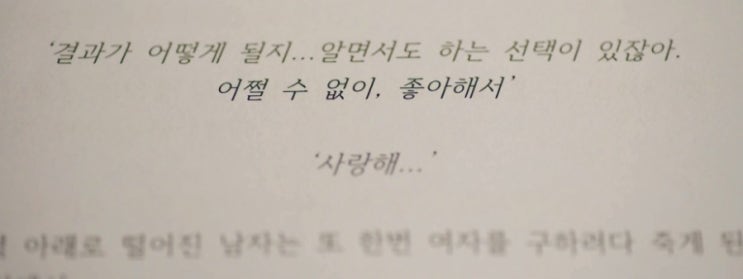 ‘결과가 어떻게 될지...알면서도 하는 선택이 있잖아.
어쩔 수 없이, 좋아해서’
‘사랑해...’
아래로 떨어진 남자는 또 한번 여자를 구하려다 죽게 된